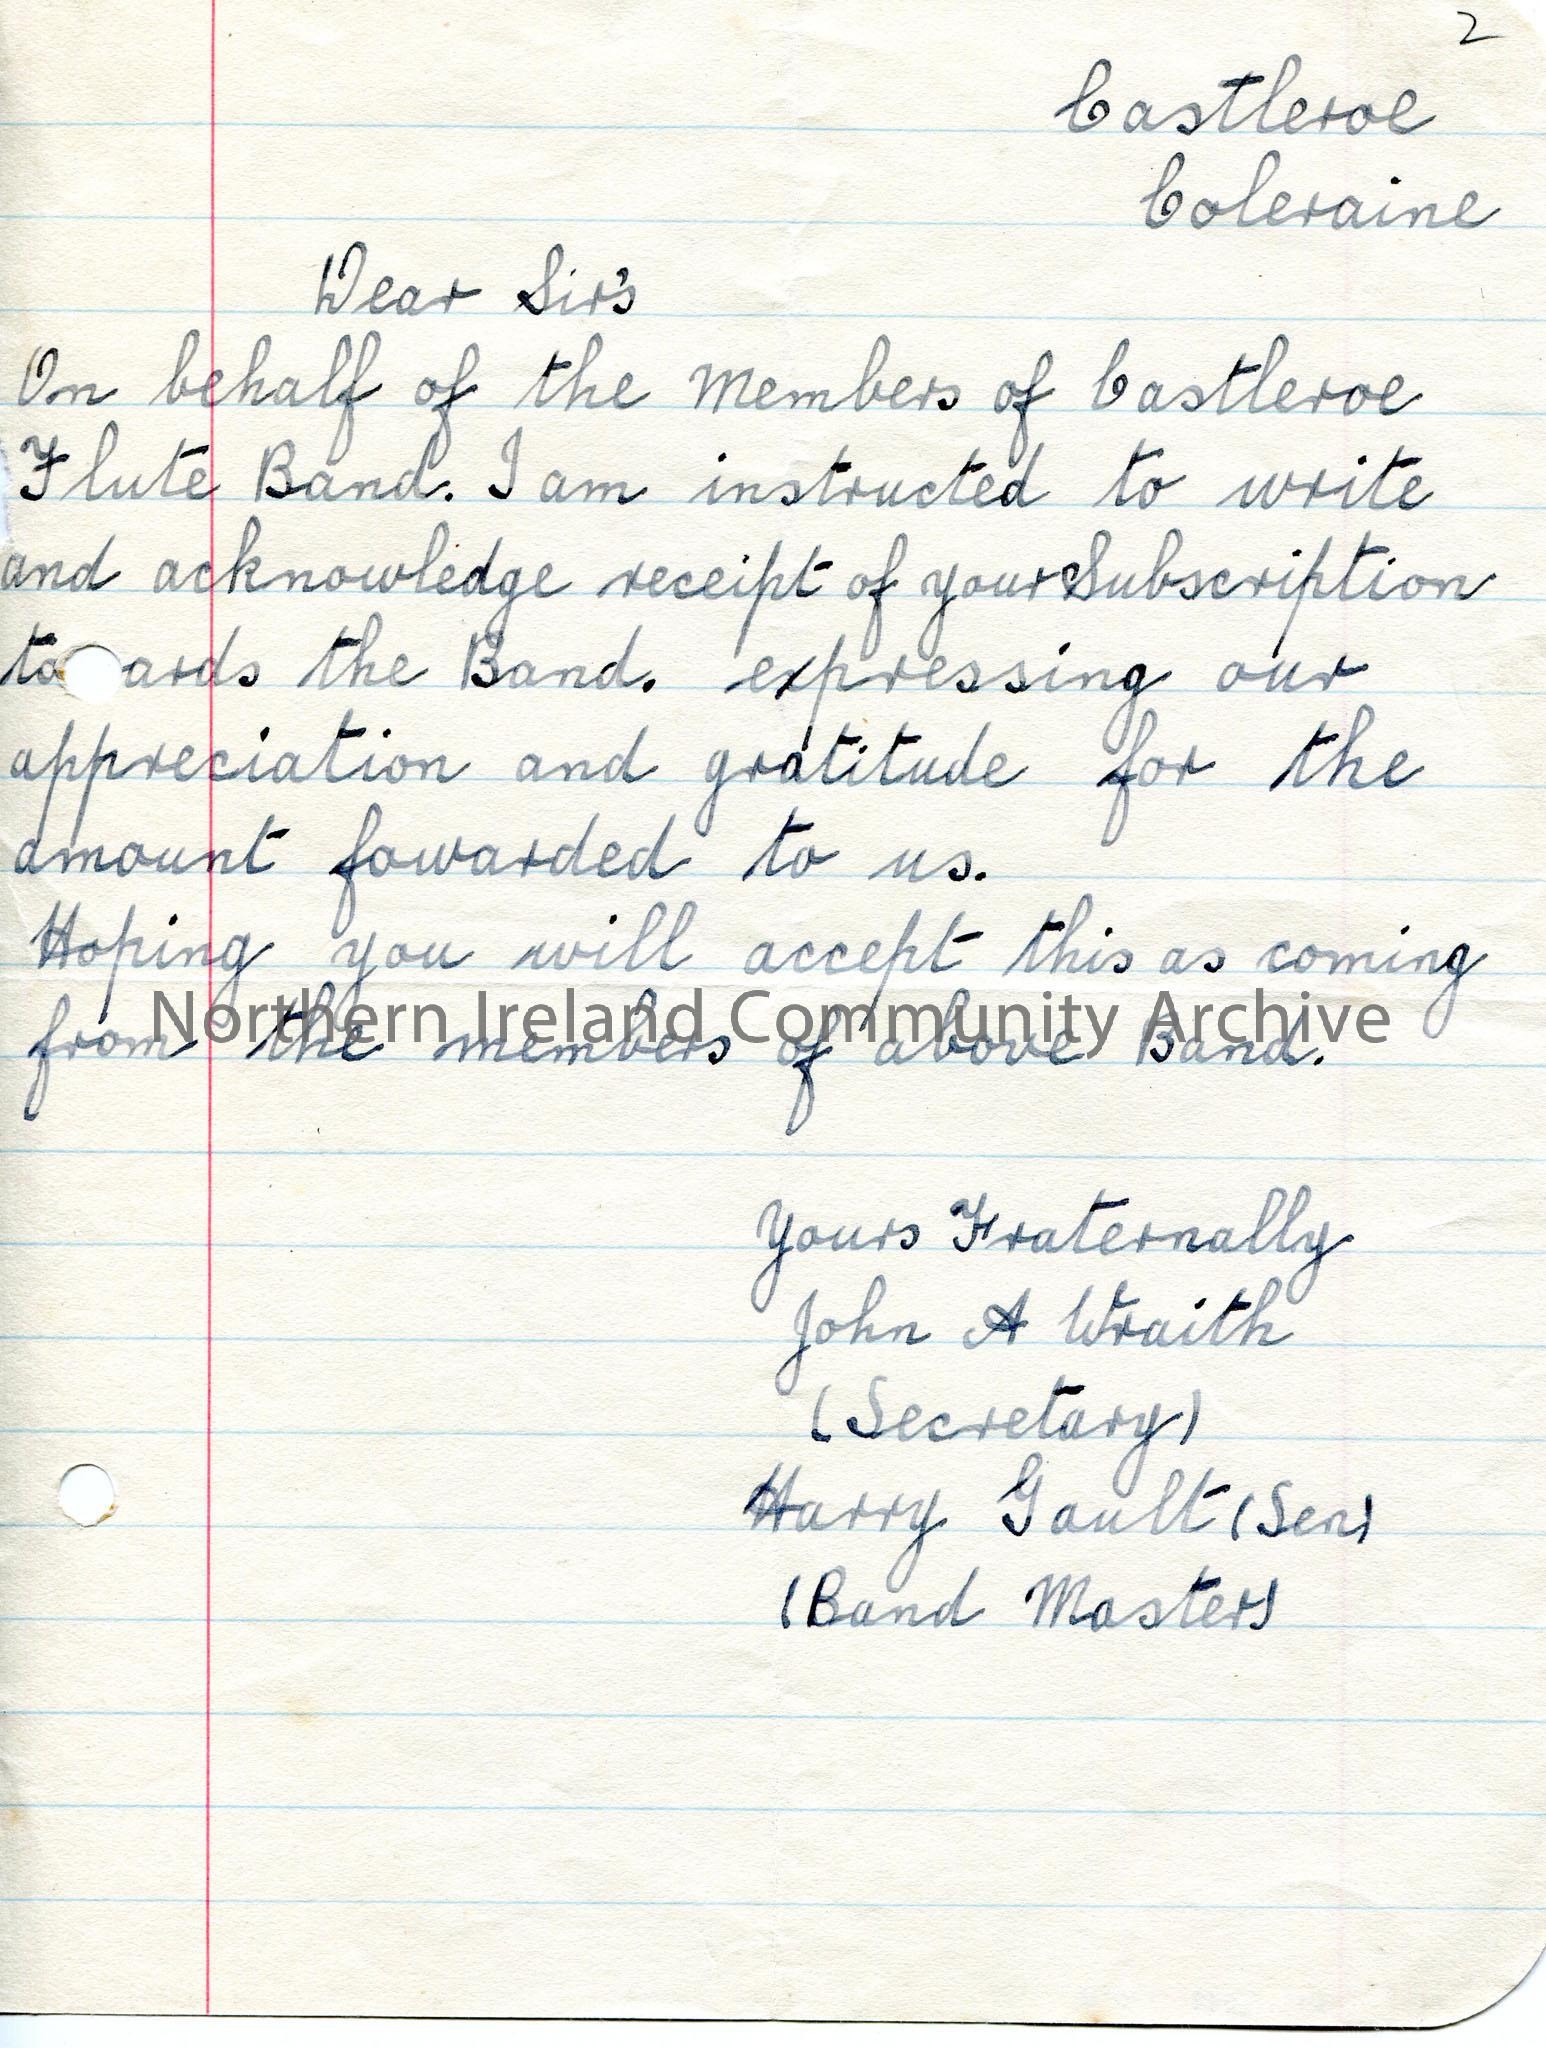 2
Castleroe
Coleraine
Dear Sir's
On behalf of the Members of Castleroe
Flute Band. I am instructed to write
and acknowledge receipt of your Subscription
to ards the Band. expressing our
appreciation and gratitude for the
amount fowarded to us.
Hoping you will accept this as coming
from the members of above Band.
Northern Ireland Community Archive
Yours Fraternally
John A Wraith
(Secretary)
Harry Gault (Sen)
(Band Master)